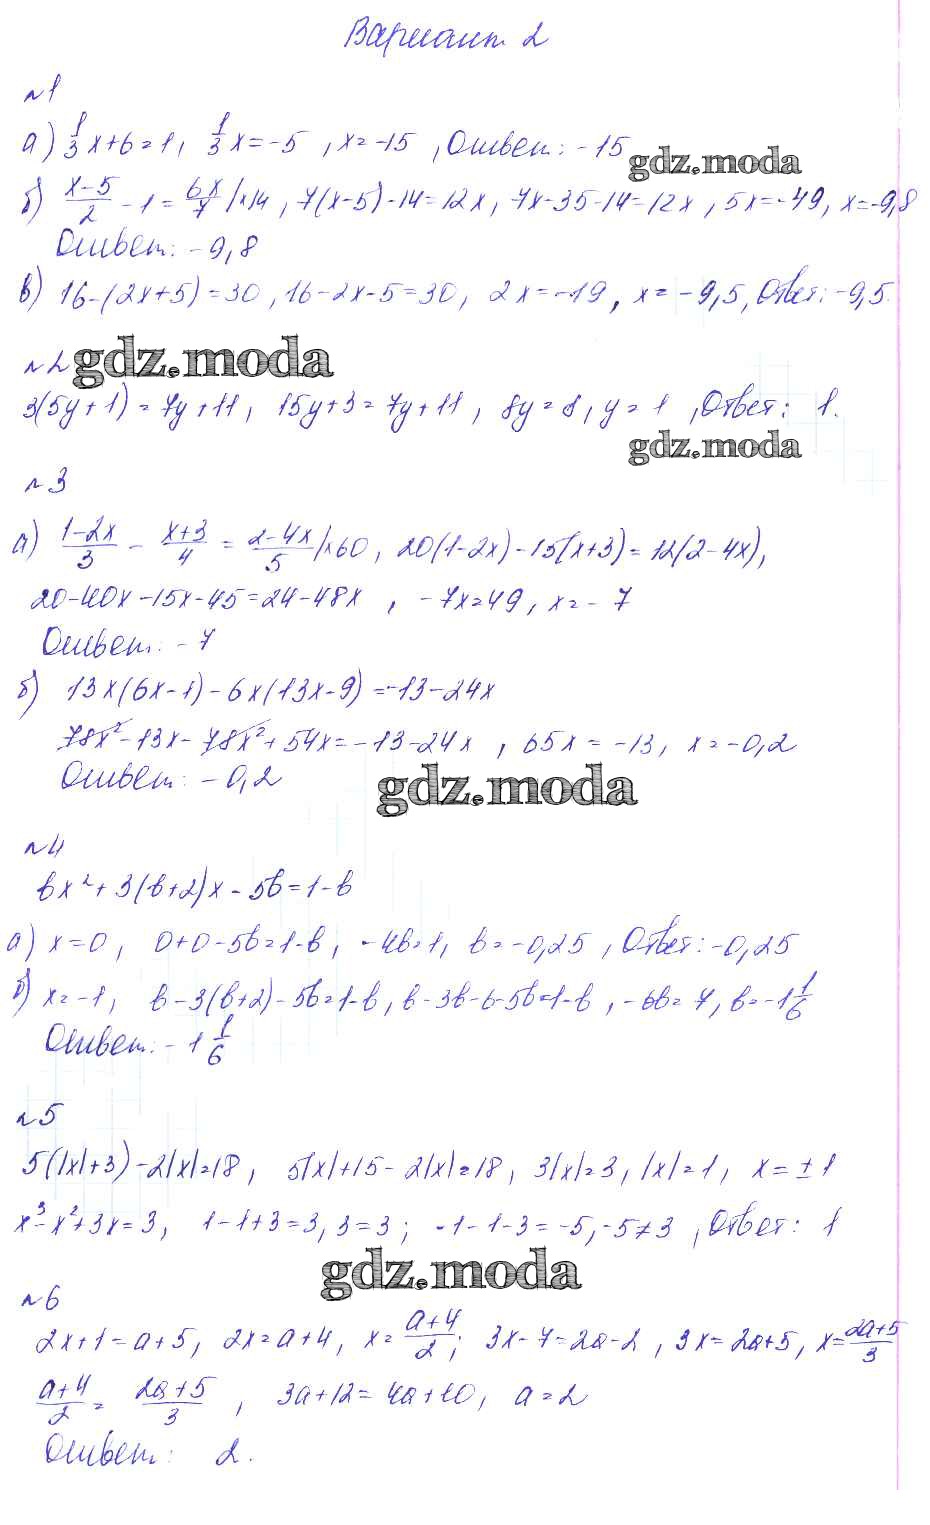 Вариант 2
№1
а) 1/3 x+6=1, 1/3 x=-5, x=-15, Ответ: -15
gdz.moda
б) (x-5)/2 - 1 = 6x/7 |×14, 7(x-5)-14=12x, 7x-35-14=12x, 5x=-49, x=-9,8
Ответ: -9,8
в) 16-(2x+5)=30, 16-2x-5=30, 2x=-19, x=-9,5, Ответ: -9,5.
№2 gdz.moda
3(5y+1)=7y+11, 15y+3=7y+11, 8y=8, y=1, Ответ: 1.
gdz.moda
№3
а) (1-2x)/3 - (x+3)/4 = (2-4x)/5 |×60, 20(1-2x)-15(x+3)=12(2-4x),
20-40x-15x-45=24-48x, -7x=49, x=-7
Ответ: -7
б) 13x(6x-1)-6x(13x-9)=-13-24x
78x²-13x-78x²+54x=-13-24x, 65x=-13, x=-0,2
Ответ: -0,2
gdz.moda
№4
bx²+3(b+2)x-5b=1-b
а) x=0, 0+0-5b=1-b, -4b=1, b=-0,25, Ответ: -0,25
б) x=-1, b-3(b+2)-5b=1-b, b-3b-6-5b=1-b, -6b=7, b=-1 1/6
Ответ: -1 1/6
№5
5(|x|+3)-2|x|=18, 5|x|+15-2|x|=18, 3|x|=3, |x|=1, x=±1
x³-x²+3x=3, 1-1+3=3, 3=3; -1-1-3=-5, -5≠3, Ответ: 1
gdz.moda
№6
2x+1=a+5, 2x=a+4, x=(a+4)/2; 3x-7=2a-2, 3x=2a+5, x=(2a+5)/3
(a+4)/2 = (2a+5)/3, 3a+12=4a+10, a=2
Ответ: 2.